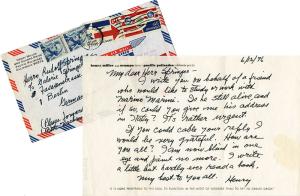 Herrn Rudolf Springer
Galerie Springer
Fasanenstrasse
Berlin
Germany
henry miller
6/22/76
My dear Herr Springer—
I write you on behalf of a friend
who would like to study or work with
Marino Marini. Is he still alive and
if so could you give me his address
in Italy? It's rather urgent.
If you could cable your reply I
would be very grateful. How are
you all? I am now blind in one
eye and paint no more. I write
a little but hardly ever read a book.
My best to you all.
Henry